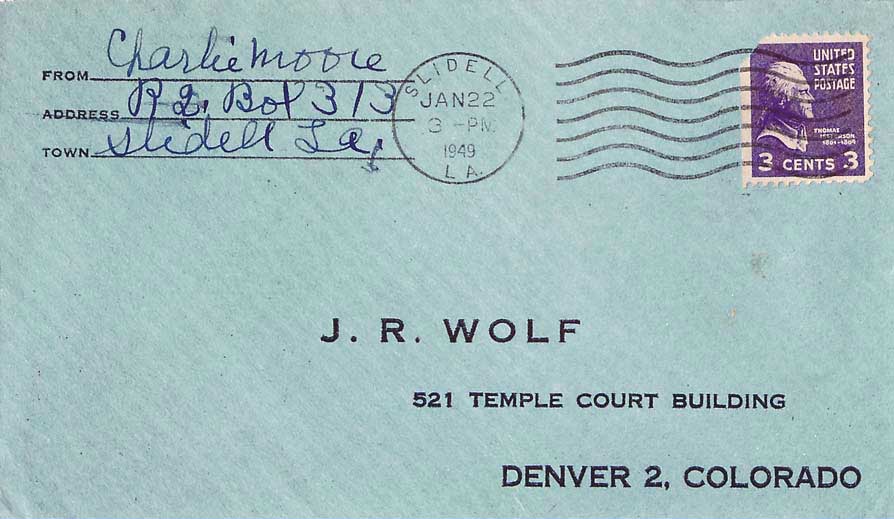 FROM Charlie Moore
ADDRESS R 2, Box 313
TOWN Slidell La,
SLIDELL
JAN 22
3 - PM
1949
LA.
UNITED
STATES
POSTAGE
THOMAS
JEFFERSON
1801-1809
3 CENTS 3
J. R. WOLF
521 TEMPLE COURT BUILDING
DENVER 2, COLORADO